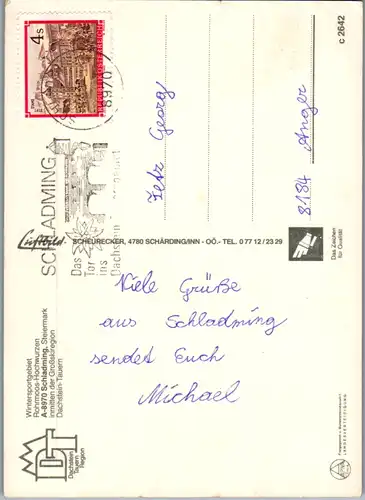 Wintersportgebiet
Rohrmoos-Hochwurzen
A-8970 Schladming, Steiermark
inmitten der Großskiregion
Dachstein-Tauern
DT
Dachstein
Tauern
Region
Viele Grüße
aus Schladming
sendet Euch
Michael
SCHLADMING
Das
Tor
ins
Dachstein
8970
4 S
REPUBLIK ÖSTERREICH
Luftbild
SCHEURECKER, 4780 SCHÄRDING/INN - OÖ.- TEL. 0 77 12 / 23 29
Fetz Georg
8184 Anger
Das Zeichen
für Qualität
c 2642